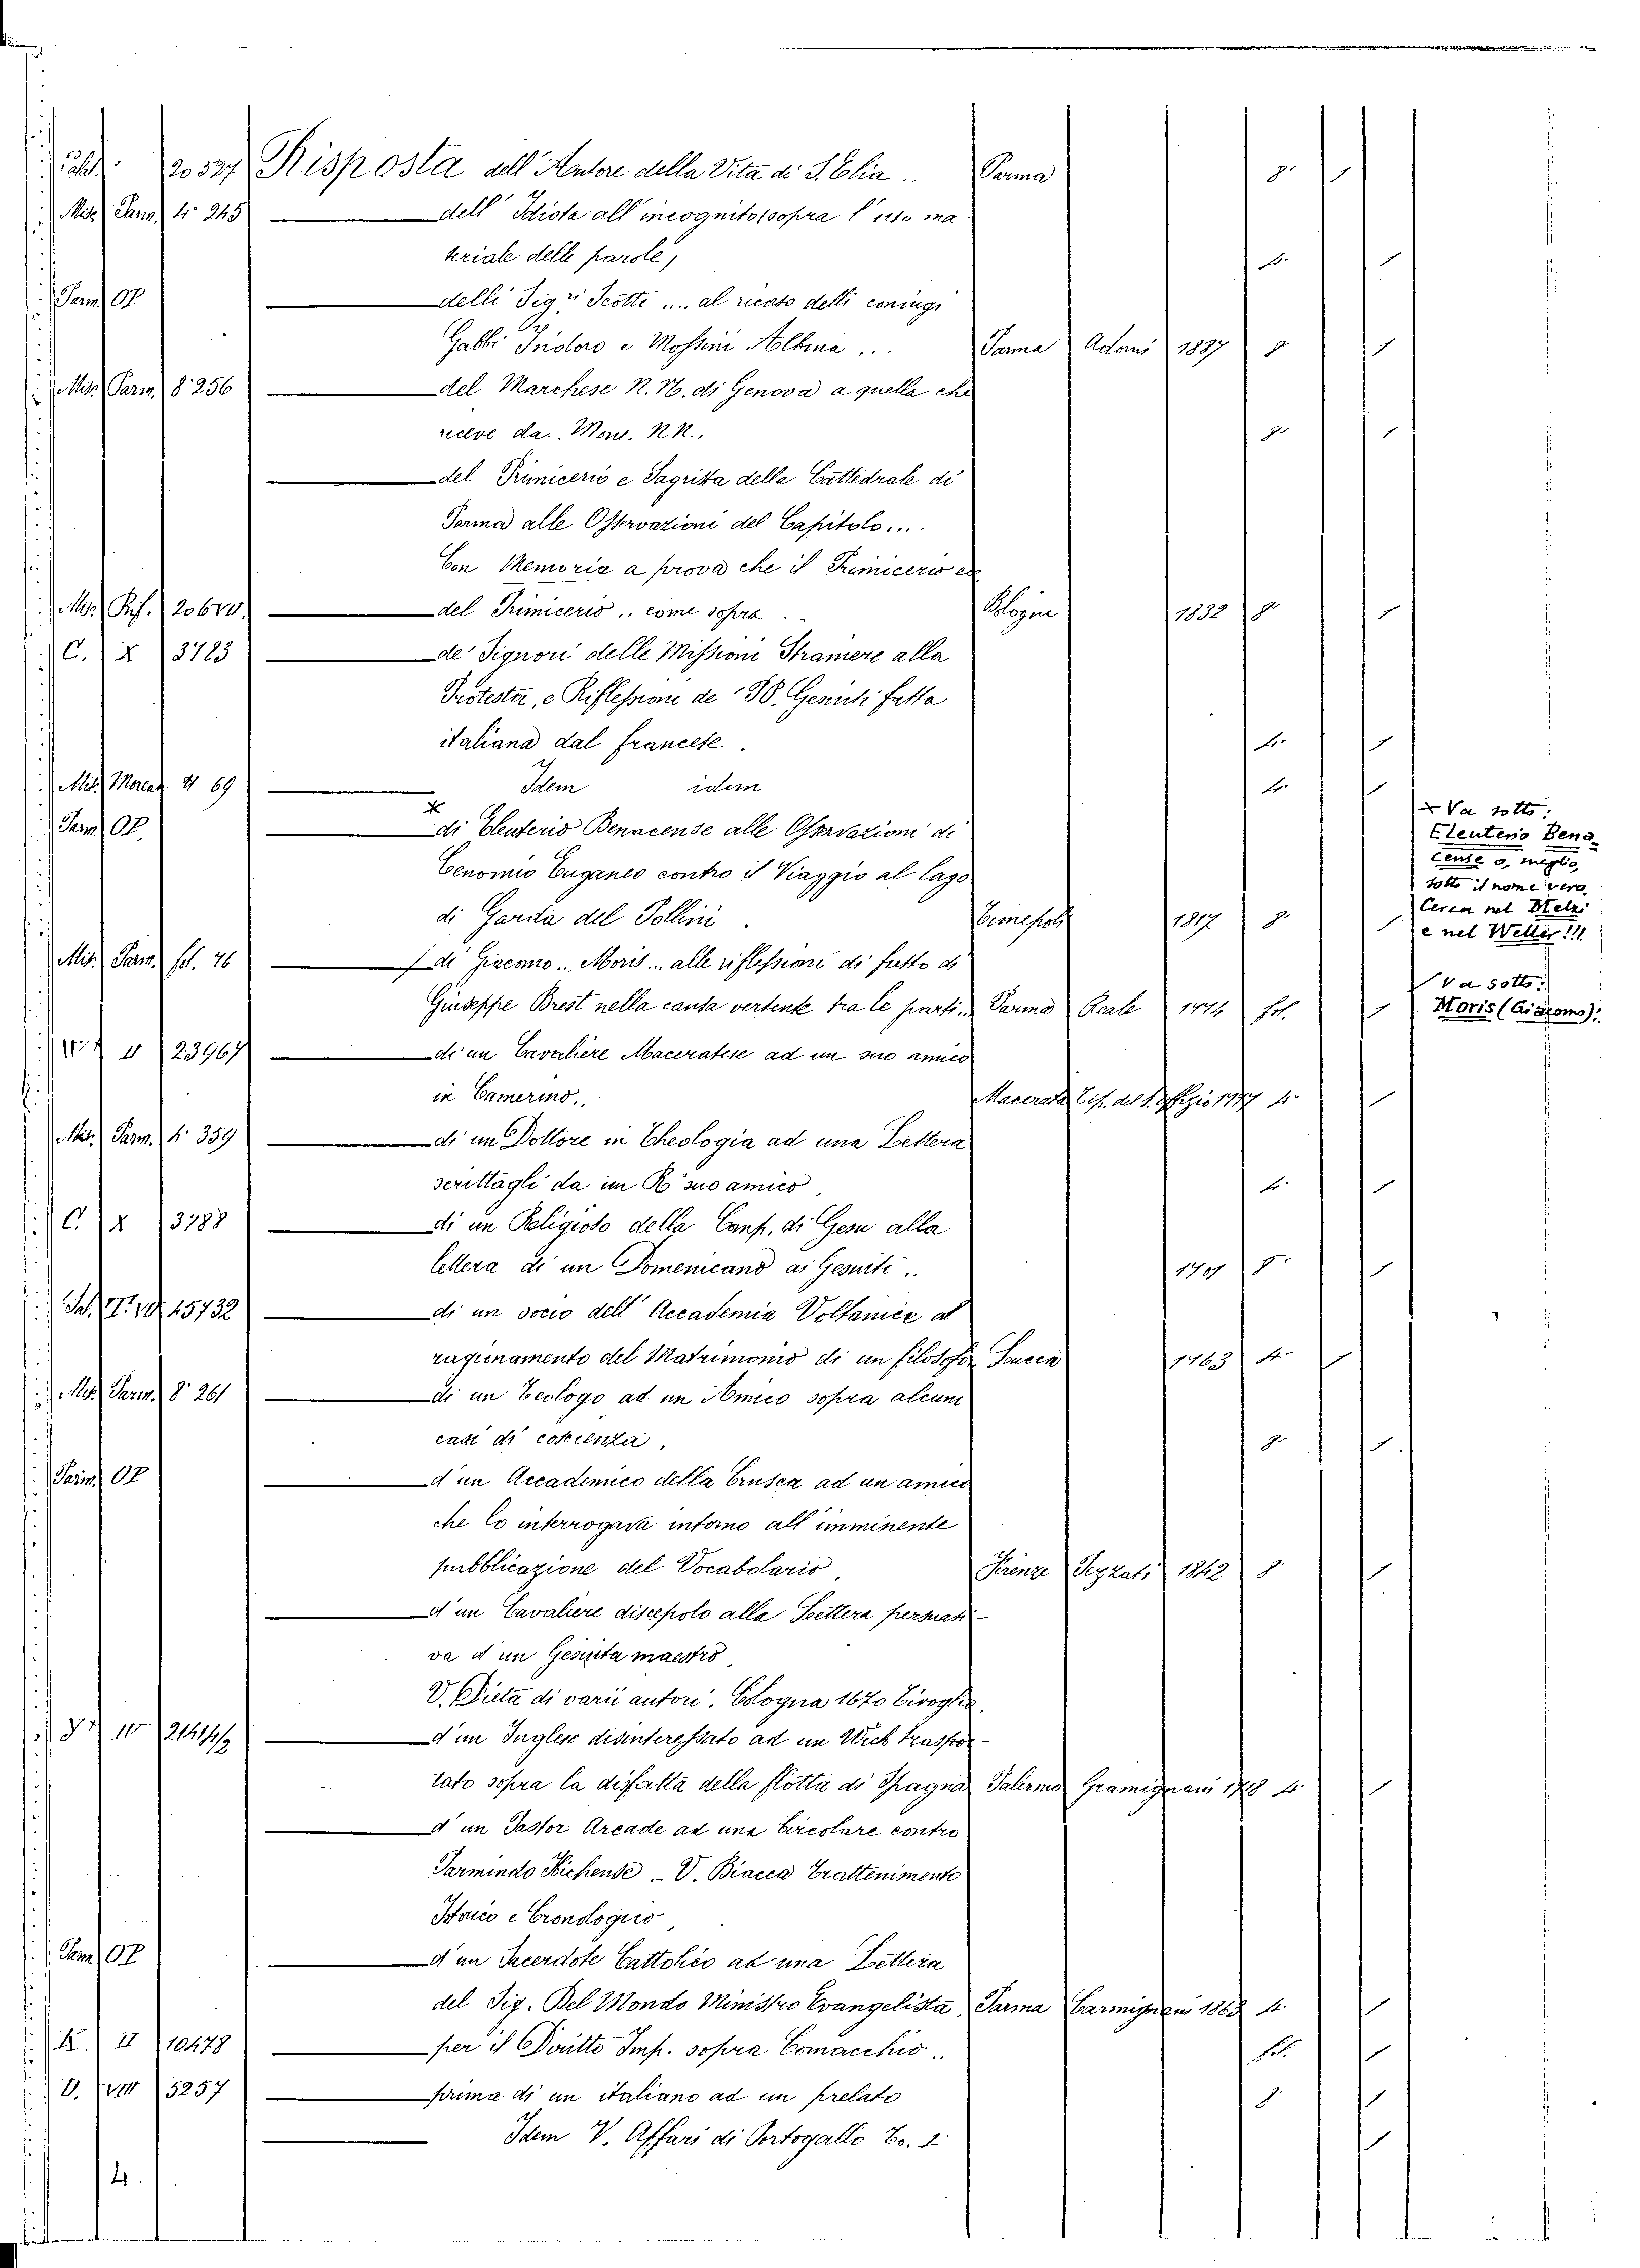 20527 Risposta dell'Autore della Vita di S. Elia.. Parma 8. 1
Mis. Parm. 4° 245 dell'Idiota all'incognito sopra l'uso ma
teriale delle parole, 4. 1
Parm. OP delli Sigri Scotti .... al ricorso delli coniugi
Gabbi Isidoro e Mossini Albina ... Parma Adorni 1837 8 1
Mis. Parm. 8° 256 del Marchese N. N. di Genova a quella che
riceve da.. Mons. NN. 8. 1
del Primicerio e Sagrista della Cattedrale di
Parma alle Osservazioni del Capitolo....
Con Memoria a prova che il Primicerio
Mis. 20670. del Primicerio .. come sopra .. 1832 8. 1
C. X 3783 de' Signori delle Missioni Straniere alla
Protesta, e Riflessioni de' PP. Gesuiti fatta
italiana dal francese. 4. 1
Mis. 4° 69 Idem idem 4. 1
Parm. OP. x di Eleuterio Benacense alle Osservazioni di
Cenomio Euganeo contro il Viaggio al lago
di Garda del Pollini. 1817 8. 1
Mis. Parm. fol. 76 di Giacomo... Moris... alle riflessioni di fatto di
Giuseppe Brest nella causa vertente tra le parti.. Parma Reale fol. 1
23967 di un Cavaliere Maceratese ad un suo amico
in Camerino.. Macerata 4. 1
Mis. Parm. 4° 359 di un Dottore in Theologia ad una Lettera
scrittagli da un R. suo amico, 4. 1
C. X 3788 di un Religioso della Comp. di Gesu alla
lettera di un Domenicano ai Gesuiti.. 8. 1
15732 di un socio dell'Accademia al
ragionamento del Matrimonio di un filosofo.. Lucca 1763 4. 1
Mis. Parm. 8° 261 di un Teologo ad un Amico sopra alcuni
casi di coscienza, 8. 1
Parm. OP d'un Accademico della Crusca ad un amico
che lo interrogava intorno all'imminente
pubblicazione del Vocabolario, Firenze Pezzati 1842 8. 1
d'un Cavaliere discepolo alla Lettera persuasi-
va d'un Gesuita maestro,
V. Pietà di varii autori.
d'un Inglese disinteressato ad un Wich traspor-
tato sopra la disfatta della flotta di Spagna Palermo Gramignani 1718 4. 1
d'un Pastor Arcade ad una Circolare contro
Parmindo Ibichense - V. Biacca Trattenimento
Istorico e Cronologico,
Parm. OP d'un Sacerdote Cattolico ad una Lettera
del Sig. Del Mondo Ministro Evangelista, Parma Carmignani 1863 4. 1
II 10478 per il Diritto Imp. sopra Comacchio.. fol. 1
D. VIII 5257 prima di un italiano ad un prelato 8 1
Idem V. Affari di Portogallo To. 1 1
x Va sotto:
Eleuterio Bena-
cense o, meglio,
sotto il nome vero.
Cerca nel Melzi
e nel Weller!!!
Va sotto:
Moris (Giacomo):
4.